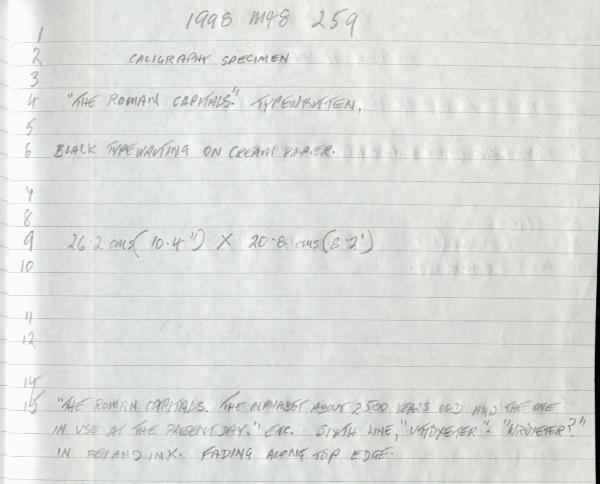 1998 M48 259
1
2 CALIGRAPHY SPECIMEN
3
4 "THE ROMAN CAPITALS." TYPEWRITTEN,
5
6 BLACK TYPEWRITING ON CREAM PAPER.
7
8
9 26.2 cms (10.4") X 20.8 cms (8.2")
10
11
12
14
15 "THE ROMAN CAPITALS. THE ALPHABET ABOUT 2500 YEARS OLD AND THE ONE
IN USE AT THE PRESENT DAY." ETC. SIXTH LINE, "UTTOXETER". "WROXETER?"
IN PEN AND INK. FADING ALONG TOP EDGE.